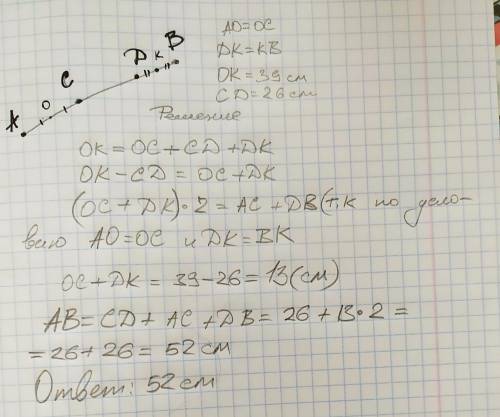 A O C D K B
AO = OC
DK = KB
OK = 39 см
CD = 26 см
Решение
OK = OC + CD + DK
OK - CD = OC + DK
(OC + DK) • 2 = AC + DB (т.к по усло-
вию AO = OC и DK = BK
OC + DK = 39 - 26 = 13 (см)
AB = CD + AC + DB = 26 + 13 • 2 =
= 26 + 26 = 52 см
Ответ: 52 см